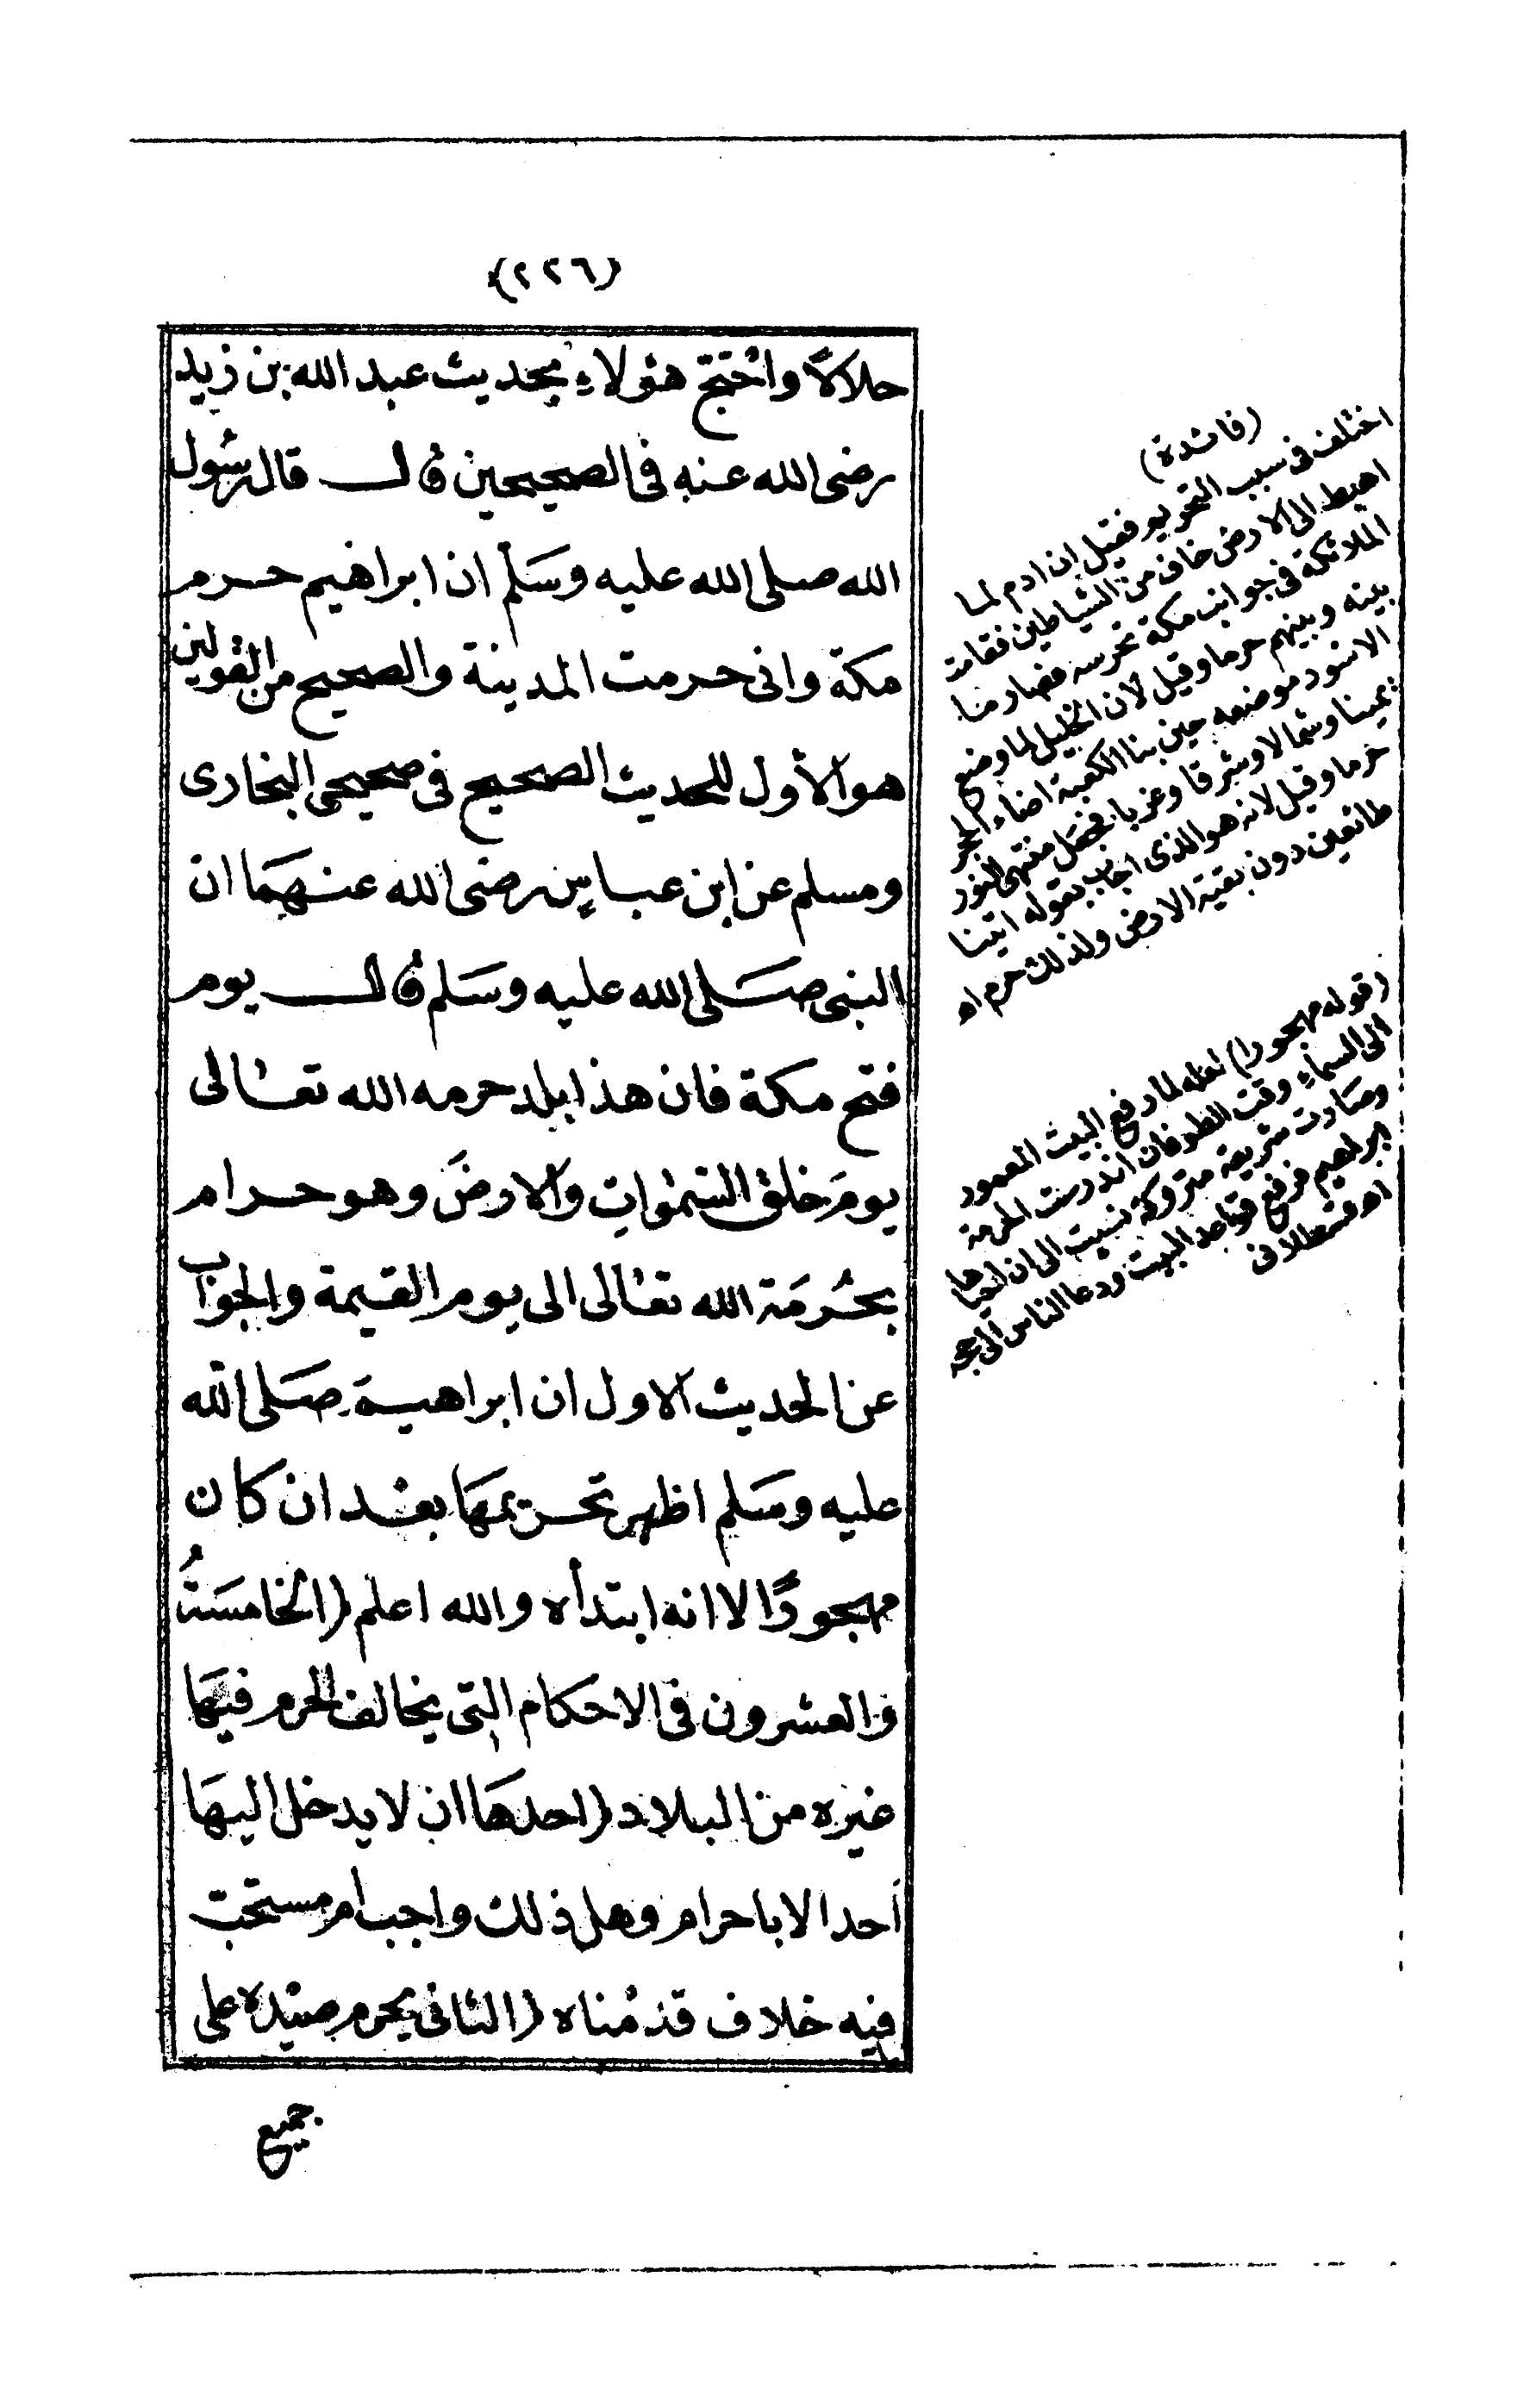 (٢٢٦)
حلالاً واحتج هؤلاء بحديث عبد الله بن زيد
رضى الله عنه فى الصحيحين قال قال رسول
الله صلى الله عليه وسلم ان ابراهيم حرم
مكة وانى حرمت المدينة والصحيح من القولين
هو الأول للحديث الصحيح فى صحيحى البخارى
ومسلم عن ابن عباس رضى الله عنهما ان
النبى صلى الله عليه وسلم قال يوم
فتح مكة فان هذا بلد حرمه الله تعالى
يوم خلق السموات والارض وهو حرام
بحرمة الله تعالى الى يوم القيمة والجواب
عن الحديث الاول ان ابراهيم صلى الله
عليه وسلم اظهر تحريمها بعد ان كان
مهجورًا لا انه ابتدأه والله اعلم (الخامسةُ
والعشرون فى الاحكام التى يخالف الحرم فيها
غيره من البلاد (احدها ان لا يدخل اليها
أحد الا باحرام وهل ذلك واجب أم مستحب
فيه خلاف قدمناه (الثانى يحرم صيده على
جميع
(فائدة)
اختلف فى سبب التحريم فقيل ان ادم لما
اهبط الى الارض خاف من الشياطين فقامت
الملائكة فى جوانب مكة تحرسه فصار منا
بينه وبينهم حرما وقيل لان الخليل لما وضع
الاسود موضعه حين بنا الكعبة اضاء الحجر
يمينا وشمالا وشرقا وغربا فحصل منتهى النور
حرما وقيل لانه هو الذى اجاب بقوله اتينا
طائعين دون بقية الارض ولذلك حرم اه
(قوله مهجورا) لعله لما رفع البيت المعمور
الى السماء وقت الطوفان اندرست الحرمة
وصارت شريعة متروكة نسيت الى ان احياها
ابرهيم فرفع قواعد البيت ودعا الناس الى حجه
اه قسطلانى